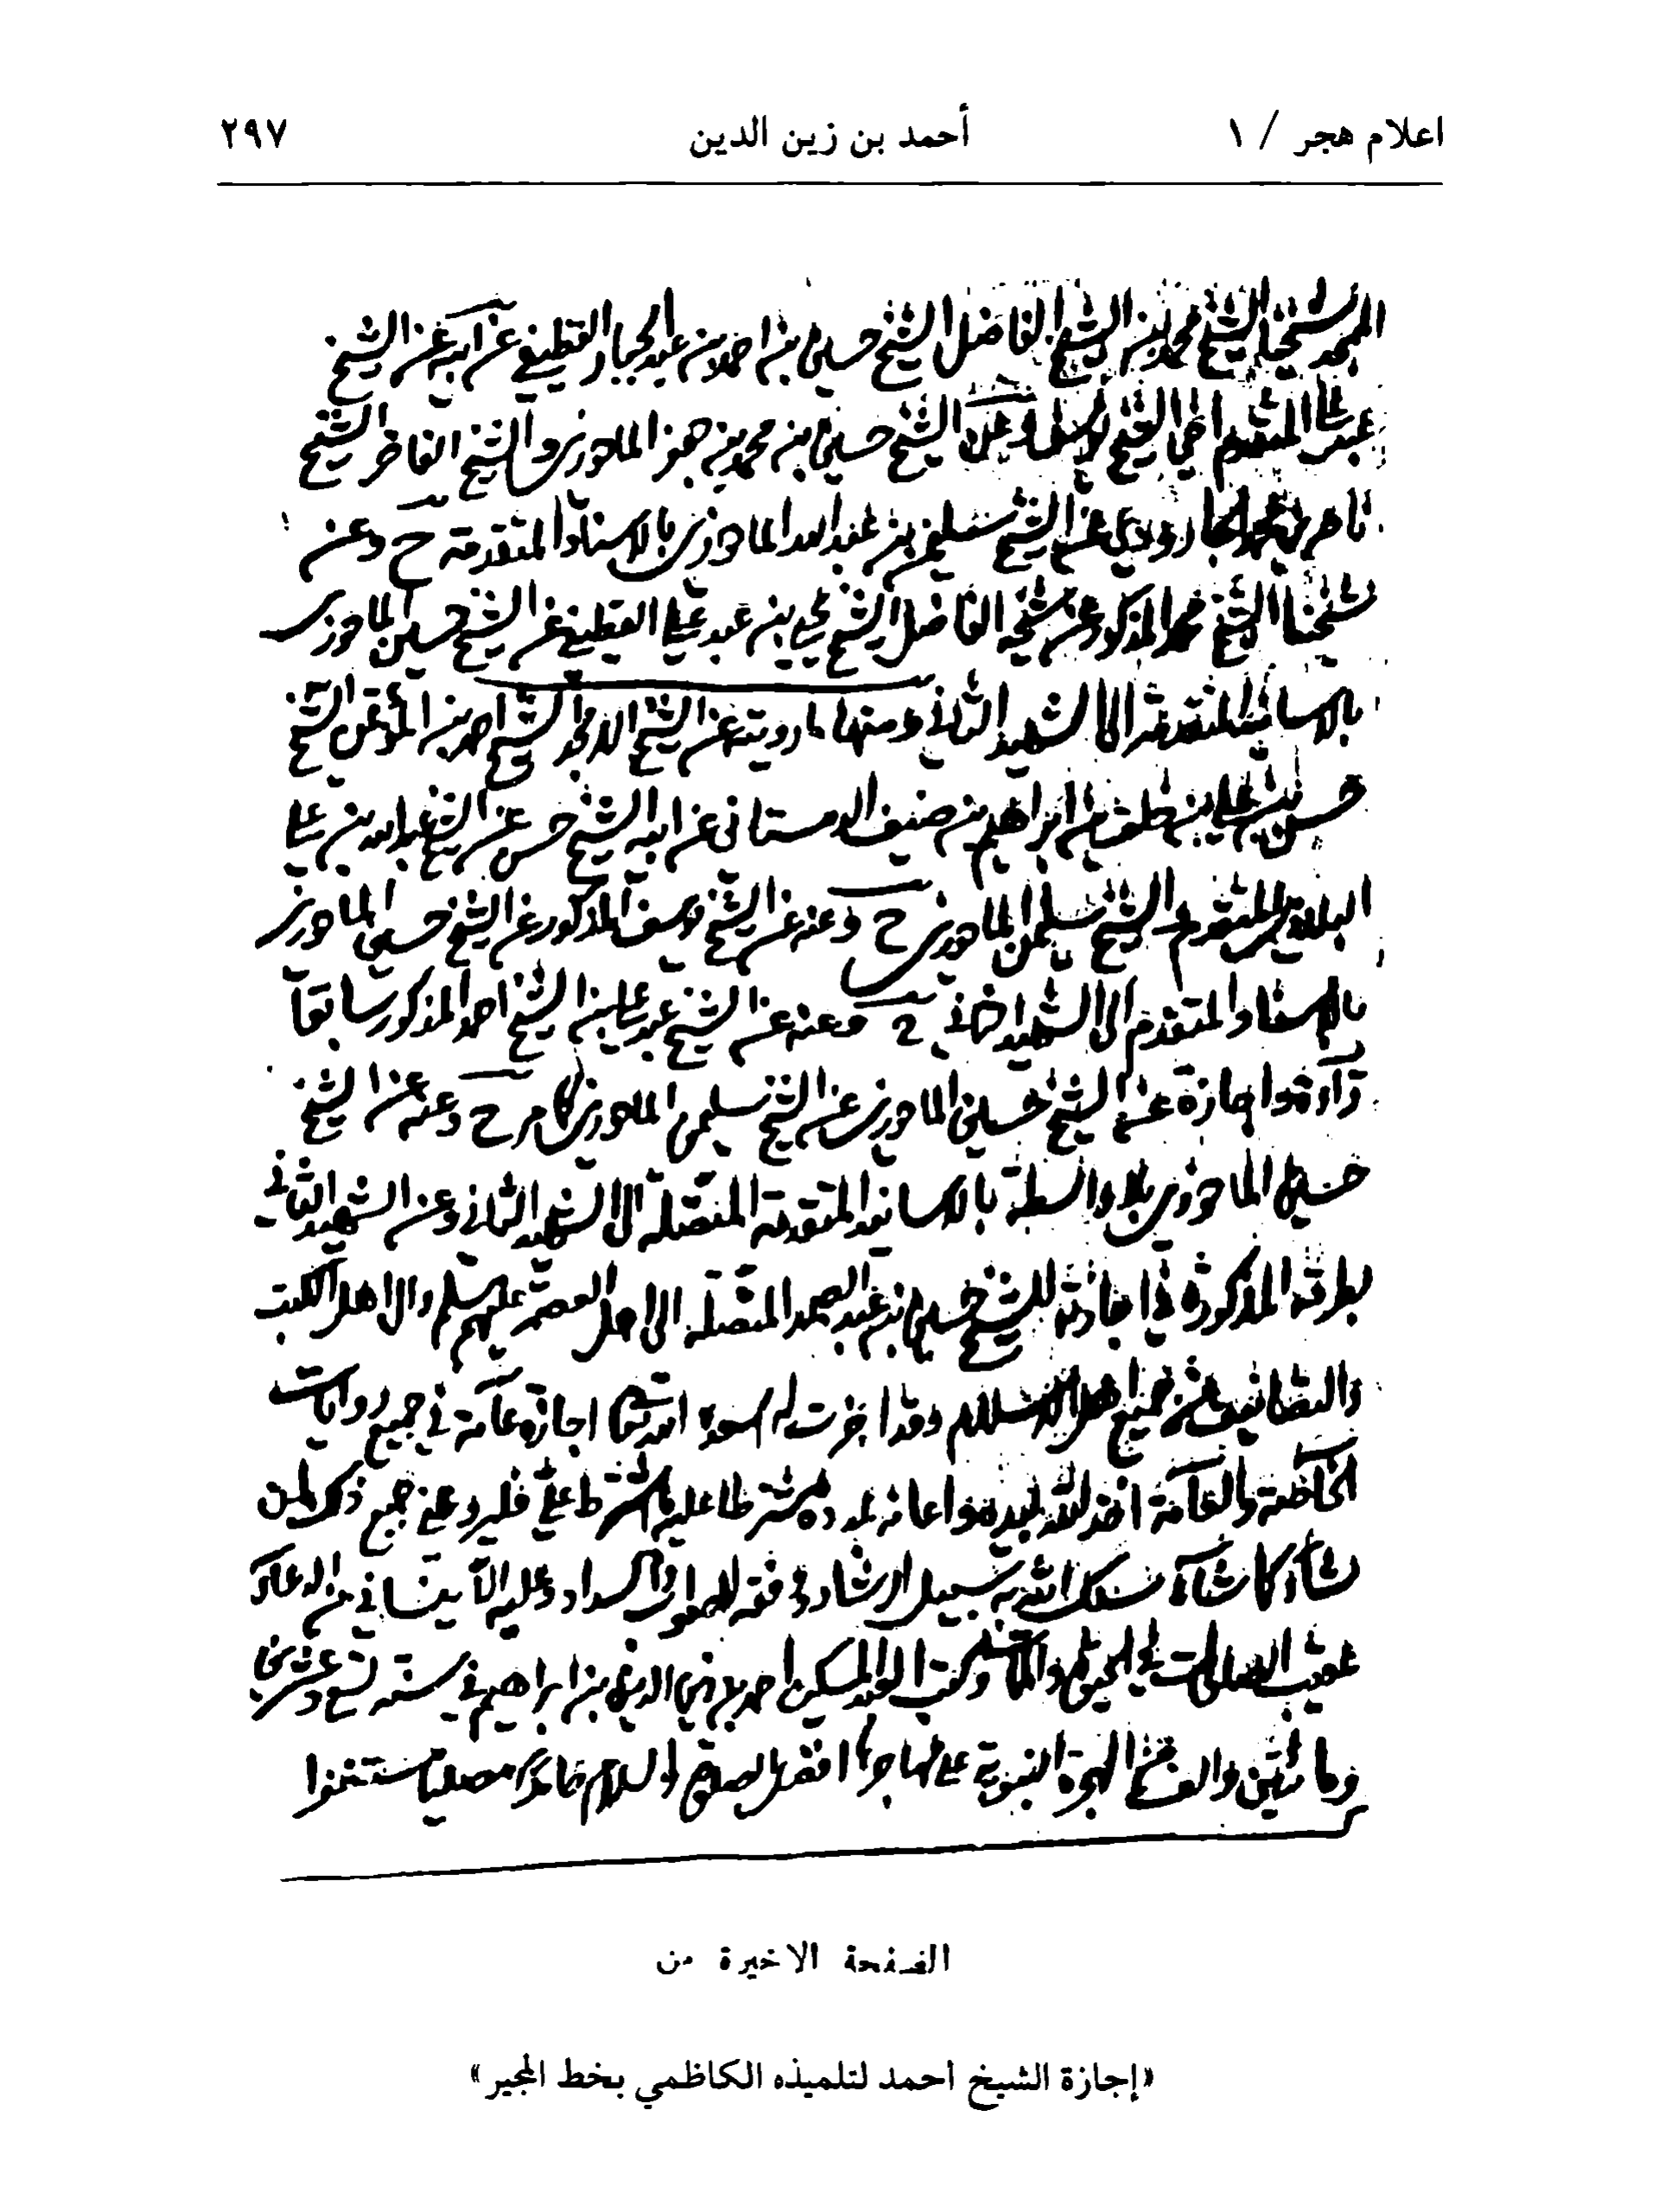 اعلام هجر / ١
أحمد بن زين الدين
٢٩٧
الشيخ محمد بن الشيخ الفاضل الشيخ حسين بن احمد بن عبد الجبار القطيفي عن ابيه عن الشيخ
الشيخ حسين بن محمد بن جعفر الماحوزي والشيخ الفاخر الشيخ
عن الشيخ سليمن بن عبد الله الماحوزي بالاسناد المتقدمة ح وعن
شيخنا الشيخ محمد المذكور عن شيخه الفاضل الشيخ يحيى بن عبد علي القطيفي عن الشيخ حسين الماحوزي
بالاسانيد المتقدمة الى الشهيد الثاني ومنها ما رويته عن الشيخ الامجد الشيخ احمد بن المؤتمن الشيخ
حسن بن علي بن خلف بن ابراهيم بن ضيف الله الدمستاني عن ابيه الشيخ حسن عن الشيخ عبد الله بن علي
البلادي الشيخ سليمن الماحوزي ح وعنه عن الشيخ يوسف المذكور عن الشيخ حسين الماحوزي
بالاسناد المتقدم الى الشهيد الثاني ح وعنه عن الشيخ عبد علي بن الشيخ احمد المذكور سابقا
قرآءة واجازة عن الشيخ حسين الماحوزي عن الشيخ سليمن الماحوزي كما مر ح وعنه عن الشيخ
حسين الماحوزي بلا واسطة بالاسانيد المتقدمة المتصلة الى الشهيد الثاني وعن الشهيد الثاني
بطرقه المذكورة في اجازته للشيخ حسين بن عبد الصمد المتصلة الى اهل العصمة عليهم السلم والى اهل الكتب
والتصانيف من جميع اهل الاسلام وقد اجزت له اسعده الله تعالى اجازة عامة في جميع روايات
الخاصة والعامة مشترطا عليه ما اشترط علي فليرو عني جميع ذلك لمن
شآء كما شآء سلك الله به سبيل الرشاد ووفقه للصواب والسداد وعليه الا ينساني من الدعآء
عقيب الصلوات في المحيى والممات وكتب العبد المسكين احمد بن زين الدين بن ابراهيم في سنة تسع وعشرين
ومائتين والف من الهجرة النبوية على مهاجرها افضل الصلوة والسلام حامدا مصليا مستغفرا
الصفحة الاخيرة من
«إجازة الشيخ احمد لتلميذه الكاظمي بخط المجيز»